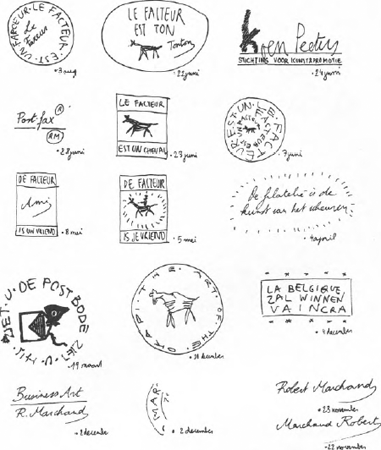 UN FACTEUR · LE FACTEUR · EST
Le
Farceur
• 3 aug
LE FACTEUR
EST TON
Tonton
• 22 juni
Koen Peeters
STICHTING VOOR KUNSTPROMOTIE
• 24 juni
Post-fax R
RM
• 23 juni
LE FACTEUR
EST UN CHEVAL
• 23 juni
LE FACTEUR EST UN
7 juni
DE FACTEUR
Ami
IS UN VRIEND
• 8 mei
DE FACTEUR
IS JE VRIEND
• 5 mei
De filatelie is de
kunst van het scheuren
4 april
ZIET · U · DE POSTBODE
ZIET · U · HIJ ·
• 19 maart
THE ART OF THE OKAPI
• 31 december
LA BELGIQUE
ZAL WINNEN
VAINCRA
• 4 december
Business Art
R. Marchand
• 2 december
MAR
• 2 december
Robert Marchand
• 23 november
Marchand Robert
• 22 november